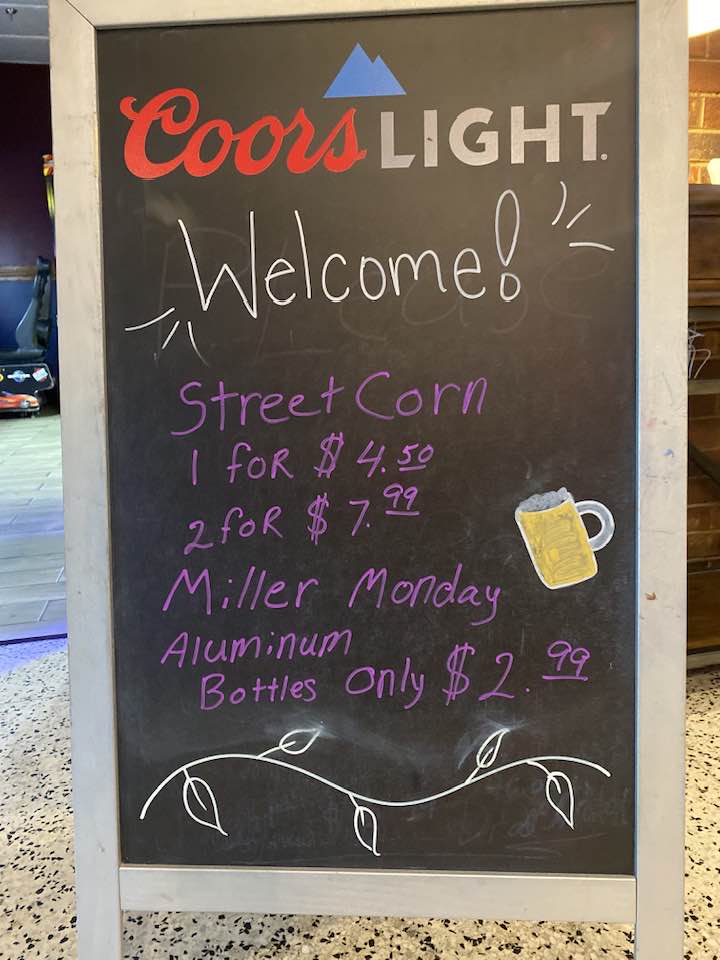 Coors LIGHT.
Welcome!
Street Corn
1 foR $4.50
2 foR $7.99
Miller Monday
Aluminum
Bottles only $2.99